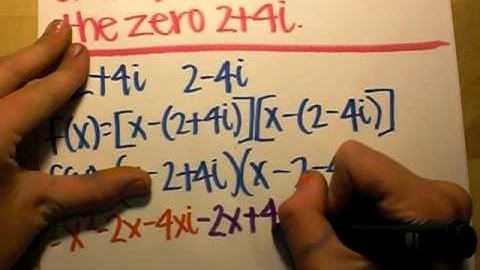 the zero 2+4i.
2+4i 2-4i
f(x)=[x-(2+4i)][x-(2-4i)]
-2+4i)(x-2-4
=x²-2x-4xi-2x+4